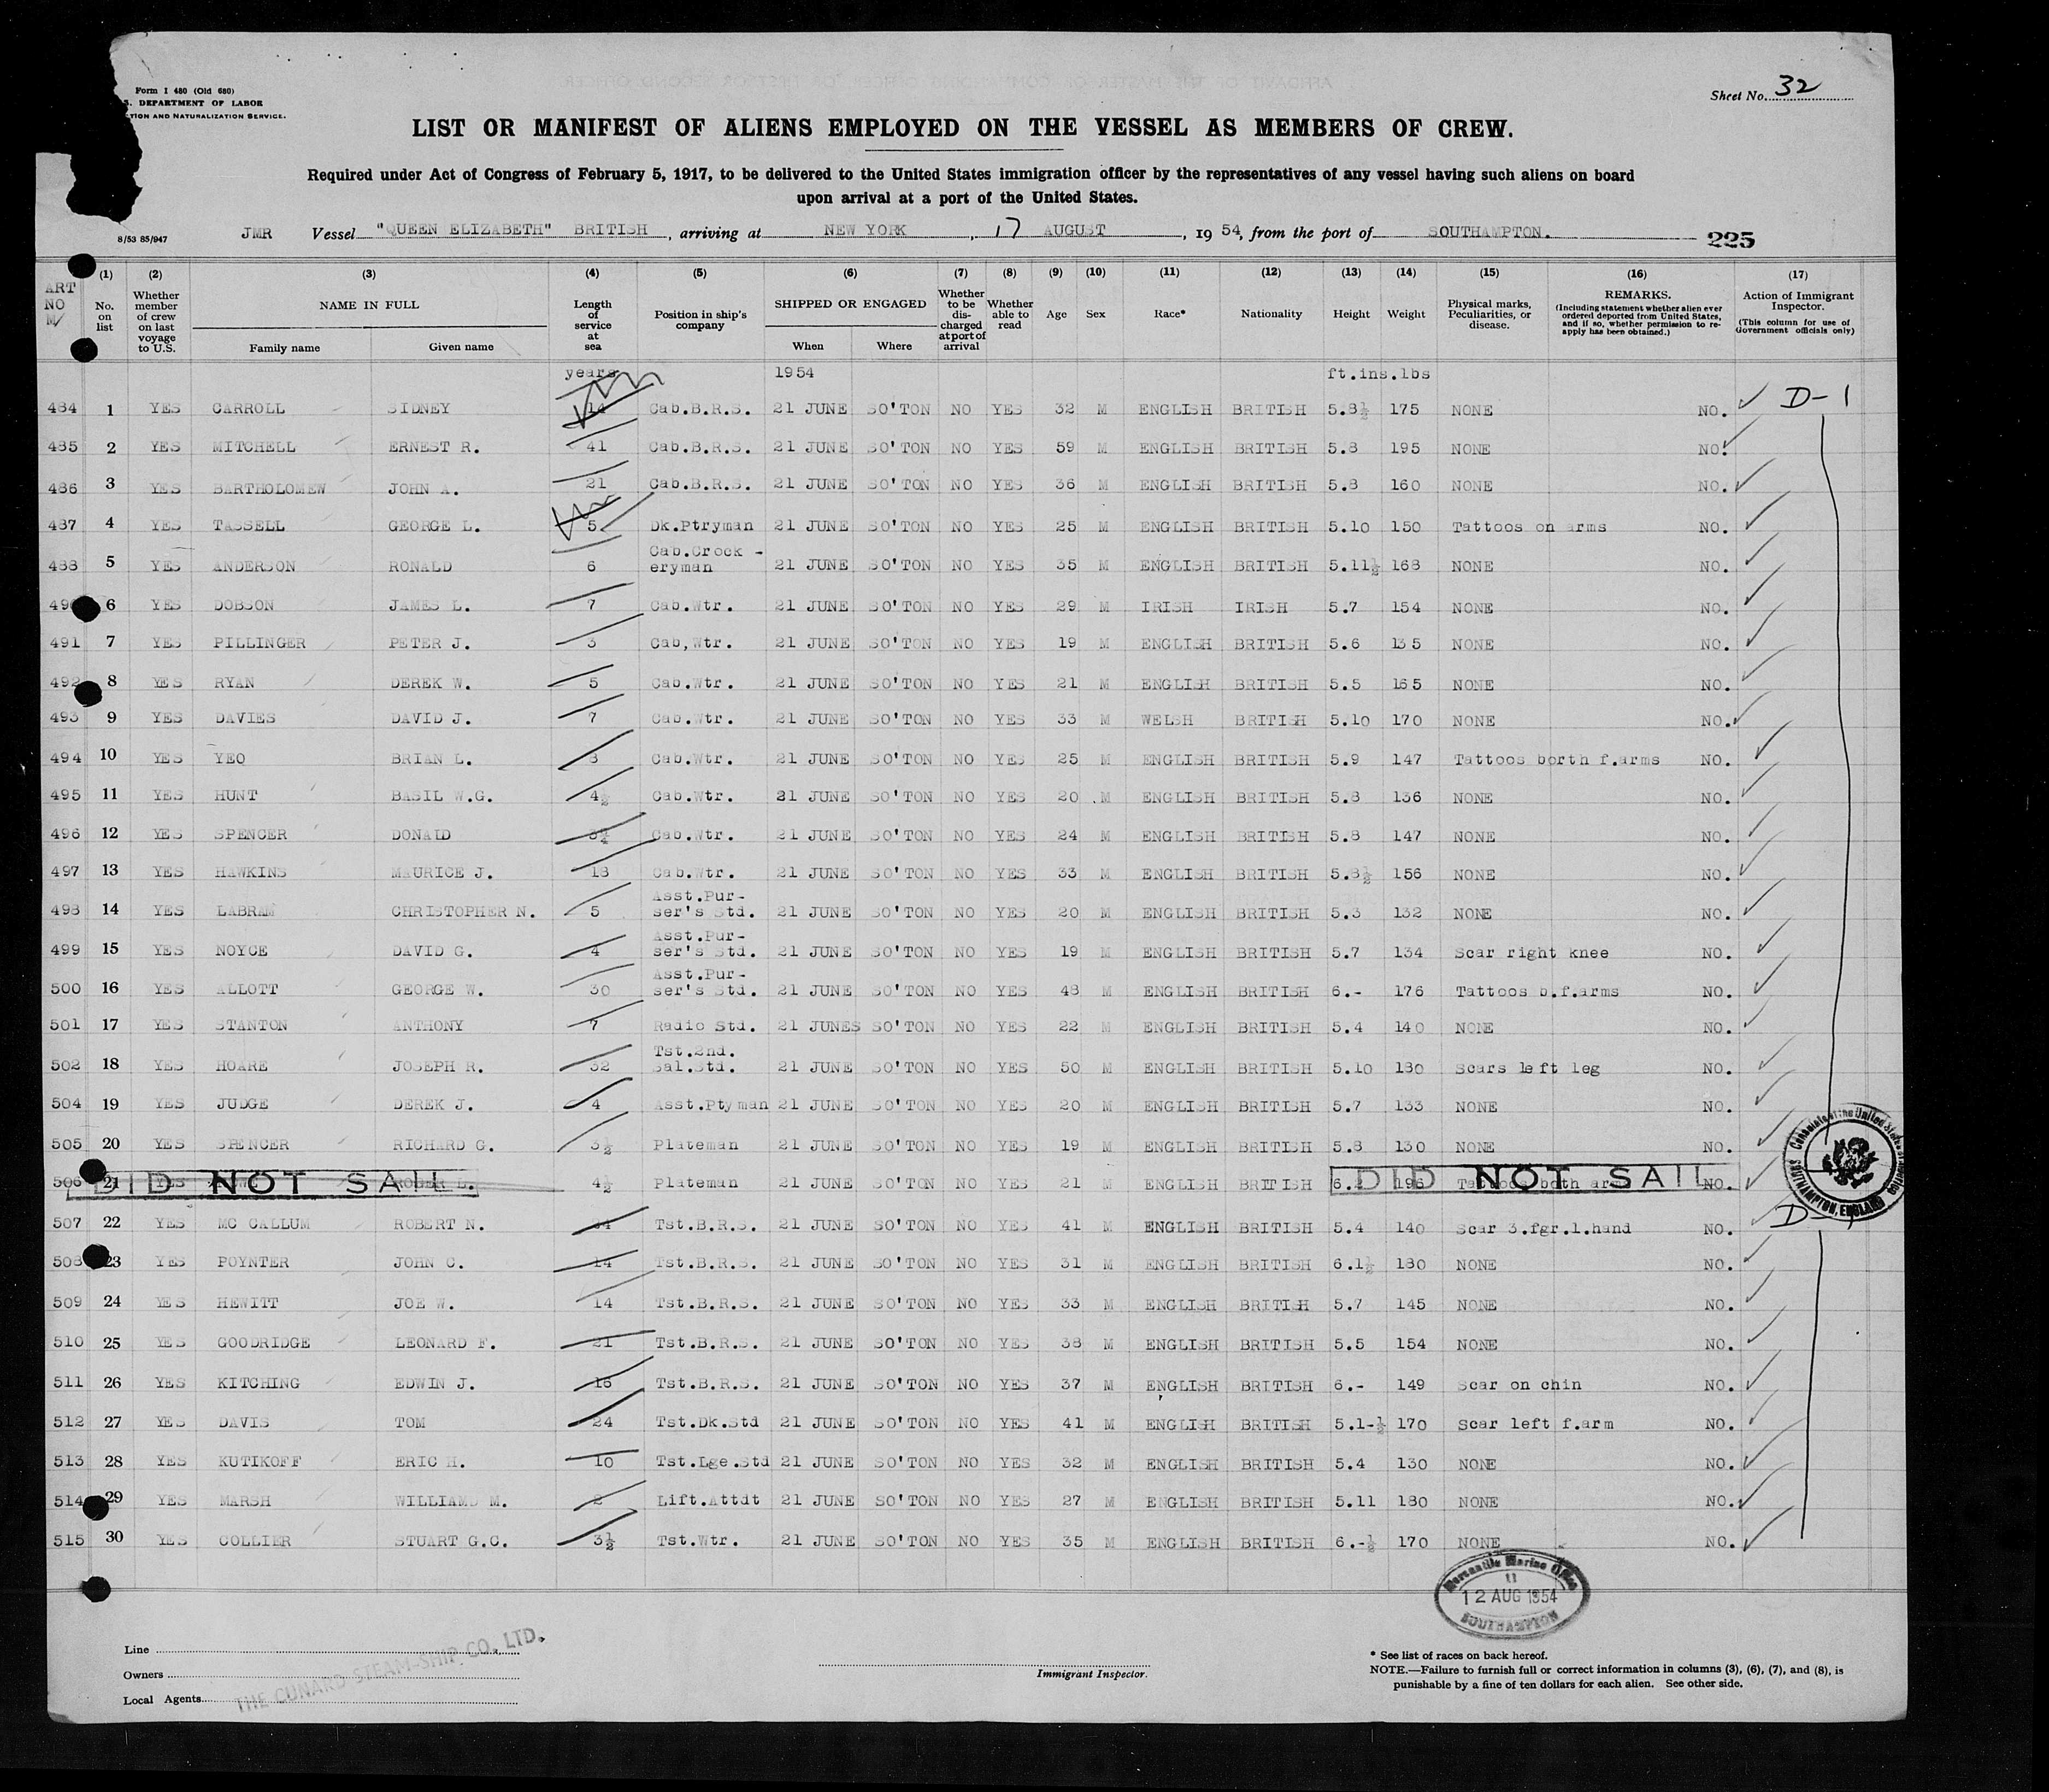 Form I 480 (Old 680)
DEPARTMENT OF LABOR
AND NATURALIZATION SERVICE.
Sheet No. 32
LIST OR MANIFEST OF ALIENS EMPLOYED ON THE VESSEL AS MEMBERS OF CREW.
Required under Act of Congress of February 5, 1917, to be delivered to the United States immigration officer by the representatives of any vessel having such aliens on board
upon arrival at a port of the United States.
8/53 85/947 JMR Vessel "QUEEN ELIZABETH" BRITISH, arriving at NEW YORK, 17 AUGUST, 1954, from the port of SOUTHAMPTON. 225
ART NO M/ (1) No. on list (2) Whether member of crew on last voyage to U.S. (3) NAME IN FULL Family name Given name (4) Length of service at sea (5) Position in ship's company (6) SHIPPED OR ENGAGED When Where (7) Whether to be discharged at port of arrival (8) Whether able to read (9) Age (10) Sex (11) Race* (12) Nationality (13) Height (14) Weight (15) Physical marks, Peculiarities, or disease. (16) REMARKS. (Including statement whether alien ever ordered deported from United States, and if so, whether permission to re-apply has been obtained.) (17) Action of Immigrant Inspector. (This column for use of Government officials only)
years 1954 ft.ins.lbs
484 1 YES CARROLL SIDNEY 14 Cab.B.R.S. 21 JUNE SO'TON NO YES 32 M ENGLISH BRITISH 5.8½ 175 NONE NO. D-1
485 2 YES MITCHELL ERNEST R. 41 Cab.B.R.S. 21 JUNE SO'TON NO YES 59 M ENGLISH BRITISH 5.8 195 NONE NO.
486 3 YES BARTHOLOMEW JOHN A. 21 Cab.B.R.S. 21 JUNE SO'TON NO YES 36 M ENGLISH BRITISH 5.8 160 NONE NO.
487 4 YES TASSELL GEORGE L. 5 Dk.Ptryman 21 JUNE SO'TON NO YES 25 M ENGLISH BRITISH 5.10 150 Tattoos on arms NO.
488 5 YES ANDERSON RONALD 6 Cab.Crock-eryman 21 JUNE SO'TON NO YES 35 M ENGLISH BRITISH 5.11½ 168 NONE NO.
6 YES DOBSON JAMES L. 7 Cab.Wtr. 21 JUNE SO'TON NO YES 29 M IRISH IRISH 5.7 154 NONE NO.
491 7 YES PILLINGER PETER J. 3 Cab,Wtr. 21 JUNE SO'TON NO YES 19 M ENGLISH BRITISH 5.6 135 NONE NO.
492 8 YES RYAN DEREK W. 5 Cab.Wtr. 21 JUNE SO'TON NO YES 21 M ENGLISH BRITISH 5.5 165 NONE NO.
493 9 YES DAVIES DAVID J. 7 Cab.Wtr. 21 JUNE SO'TON NO YES 33 M WELSH BRITISH 5.10 170 NONE NO.
494 10 YES YEO BRIAN L. Cab.Wtr. 21 JUNE SO'TON NO YES 25 M ENGLISH BRITISH 5.9 147 Tattoos borth f.arms NO.
495 11 YES HUNT BASIL W.G. 4½ Cab.Wtr. 21 JUNE SO'TON NO YES 20 M ENGLISH BRITISH 5.8 136 NONE NO.
496 12 YES SPENCER DONALD Cab.Wtr. 21 JUNE SO'TON NO YES 24 M ENGLISH BRITISH 5.8 147 NONE NO.
497 13 YES HAWKINS MAURICE J. 18 Cab.Wtr. 21 JUNE SO'TON NO YES 33 M ENGLISH BRITISH 5.8½ 156 NONE NO.
498 14 YES LABRAM CHRISTOPHER N. 5 Asst.Pur-ser's Std. 21 JUNE SO'TON NO YES 20 M ENGLISH BRITISH 5.3 132 NONE NO.
499 15 YES NOYCE DAVID G. 4 Asst.Pur-ser's Std. 21 JUNE SO'TON NO YES 19 M ENGLISH BRITISH 5.7 134 Scar right knee NO.
500 16 YES ALLOTT GEORGE W. 30 Asst.Pur-ser's Std. 21 JUNE SO'TON NO YES 48 M ENGLISH BRITISH 6.- 176 Tattoos b.f.arms NO.
501 17 YES STANTON ANTHONY 7 Radio Std. 21 JUNES SO'TON NO YES 22 M ENGLISH BRITISH 5.4 140 NONE NO.
502 18 YES HOARE JOSEPH R. 32 Tst.2nd.Sal.Std. 21 JUNE SO'TON NO YES 50 M ENGLISH BRITISH 5.10 180 Scars left leg NO.
504 19 YES JUDGE DEREK J. 4 Asst.Ptyman 21 JUNE SO'TON NO YES 20 M ENGLISH BRITISH 5.7 133 NONE NO.
505 20 YES SPENCER RICHARD G. 3½ Plateman 21 JUNE SO'TON NO YES 19 M ENGLISH BRITISH 5.8 130 NONE NO.
506 21 YES DID NOT SAIL 4½ Plateman 21 JUNE SO'TON NO YES 21 M ENGLISH BRITISH DID NOT SAIL 196 both NO.
507 22 YES MC CALLUM ROBERT N. Tst.B.R.S. 21 JUNE SO'TON NO YES 41 M ENGLISH BRITISH 5.4 140 Scar 3.fgr.l.hand NO. D-1
508 23 YES POYNTER JOHN C. 14 Tst.B.R.S. 21 JUNE SO'TON NO YES 31 M ENGLISH BRITISH 6.1½ 180 NONE NO.
509 24 YES HEWITT JOE W. 14 Tst.B.R.S. 21 JUNE SO'TON NO YES 33 M ENGLISH BRITISH 5.7 145 NONE NO.
510 25 YES GOODRIDGE LEONARD F. 21 Tst.B.R.S. 21 JUNE SO'TON NO YES 38 M ENGLISH BRITISH 5.5 154 NONE NO.
511 26 YES KITCHING EDWIN J. 16 Tst.B.R.S. 21 JUNE SO'TON NO YES 37 M ENGLISH BRITISH 6.- 149 Scar on chin NO.
512 27 YES DAVIS TOM 24 Tst.Dk.Std 21 JUNE SO'TON NO YES 41 M ENGLISH BRITISH 5.1-½ 170 Scar left f.arm NO.
513 28 YES KUTIKOFF ERIC H. 10 Tst.Lge.Std 21 JUNE SO'TON NO YES 32 M ENGLISH BRITISH 5.4 130 NONE NO.
514 29 YES MARSH WILLIAM M. 2 Lift.Attdt 21 JUNE SO'TON NO YES 27 M ENGLISH BRITISH 5.11 180 NONE NO.
515 30 YES COLLIER STUART G.C. 3½ Tst.Wtr. 21 JUNE SO'TON NO YES 35 M ENGLISH BRITISH 6.-½ 170 NONE NO.
Consulate of the United States of America SOUTHAMPTON, ENGLAND
Mercantile Marine Office
11
12 AUG 1954
SOUTHAMPTON
Line
Owners
Local Agents
THE CUNARD STEAM-SHIP CO., LTD.
Immigrant Inspector.
* See list of races on back hereof.
NOTE.—Failure to furnish full or correct information in columns (3), (6), (7), and (8), is
punishable by a fine of ten dollars for each alien. See other side.